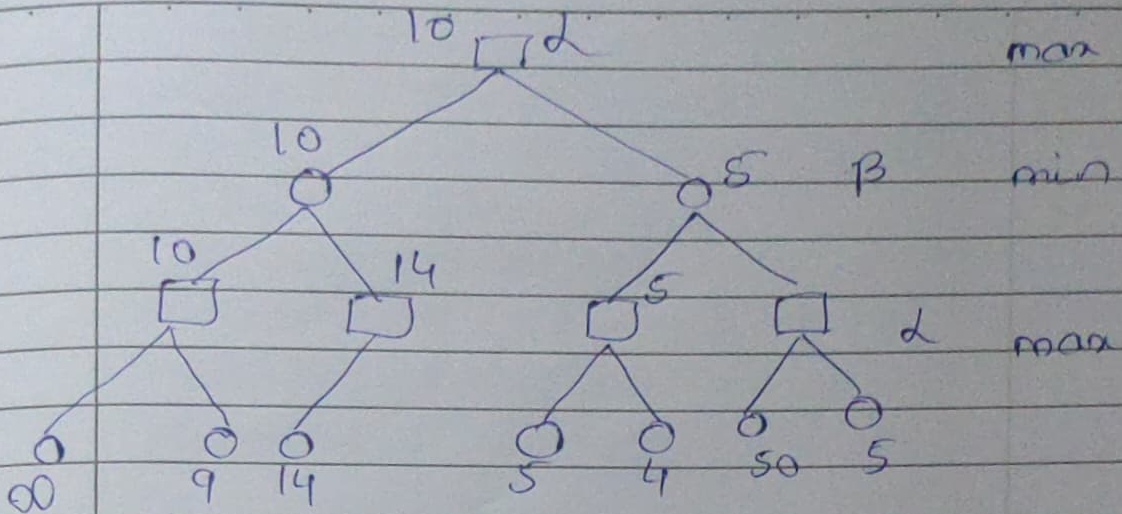 10 α max
10
5 β min
10 14
5
α max
00 9 14 5 4 50 5